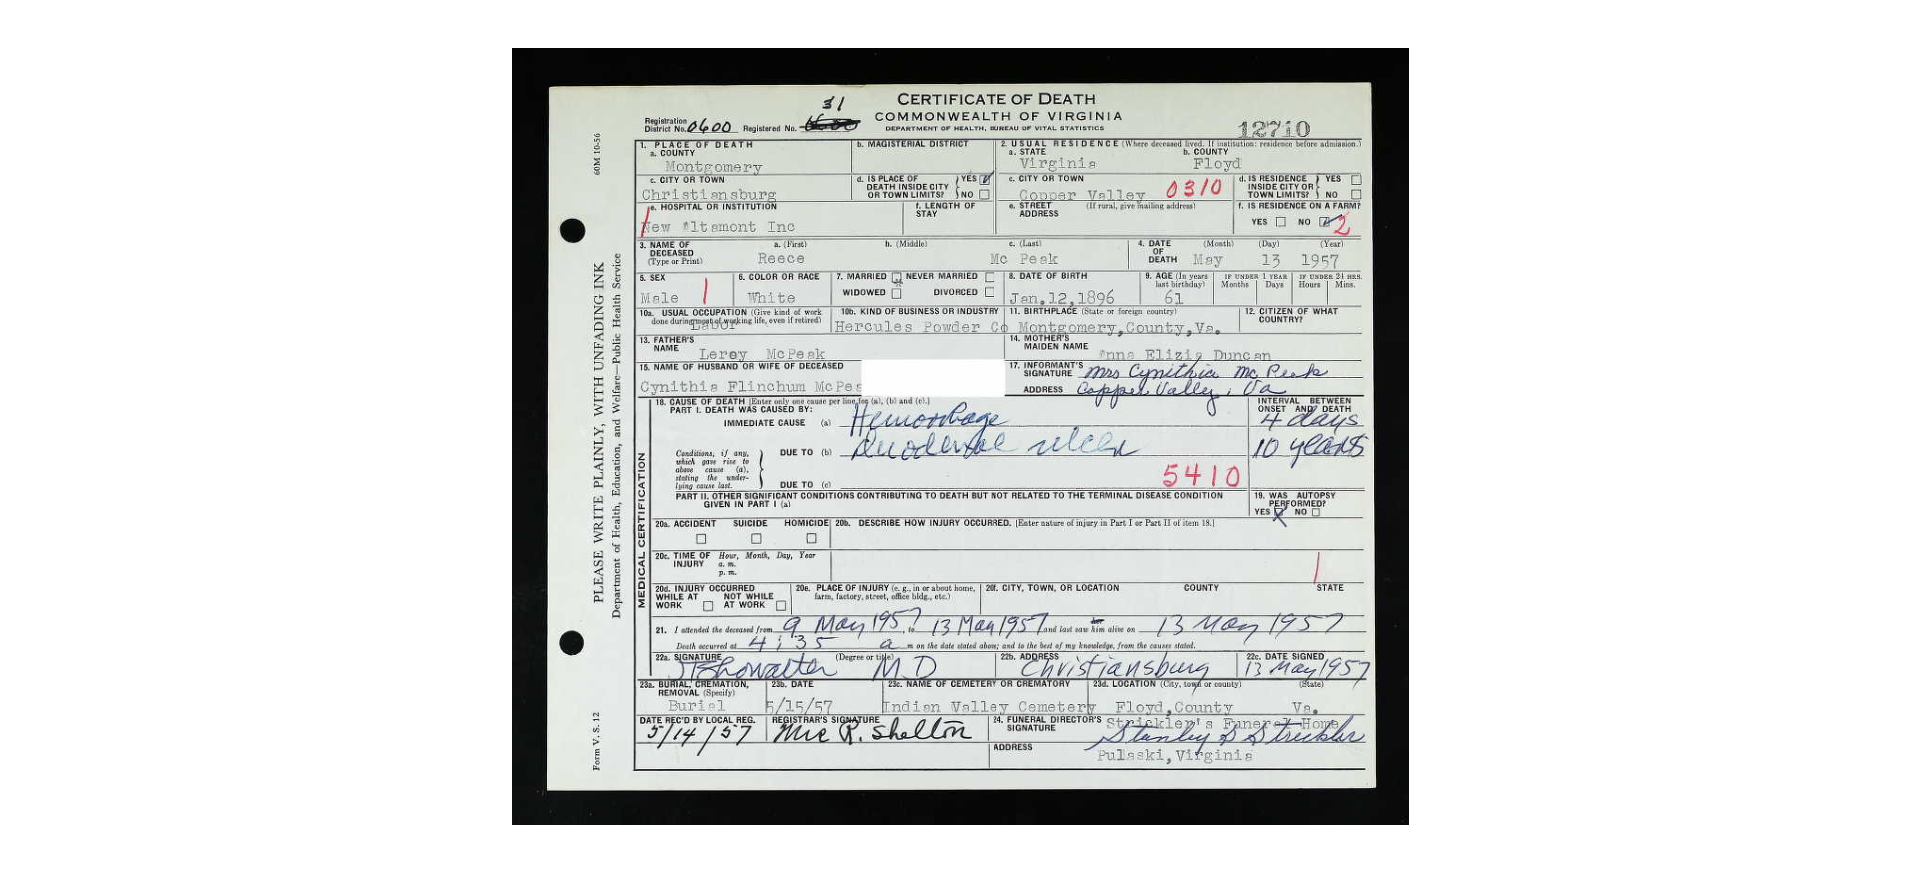 31
CERTIFICATE OF DEATH
COMMONWEALTH OF VIRGINIA
DEPARTMENT OF HEALTH, BUREAU OF VITAL STATISTICS
Registration District No. 0600 Registered No.
12710
60M 10-56
PLEASE WRITE PLAINLY, WITH UNFADING INK
Department of Health, Education, and Welfare—Public Health Service
Form V. S. 12
1. PLACE OF DEATH
a. COUNTY
Montgomery
b. MAGISTERIAL DISTRICT
2. USUAL RESIDENCE (Where deceased lived. If institution: residence before admission.)
a. STATE
Virginia
b. COUNTY
Floyd
c. CITY OR TOWN
Christiansburg
d. IS PLACE OF DEATH INSIDE CITY OR TOWN LIMITS? YES NO
c. CITY OR TOWN
Copper Valley 0310
d. IS RESIDENCE INSIDE CITY OR TOWN LIMITS? YES NO
e. HOSPITAL OR INSTITUTION
New Altamont Inc
f. LENGTH OF STAY
e. STREET ADDRESS (If rural, give mailing address)
f. IS RESIDENCE ON A FARM?
YES NO 2
3. NAME OF DECEASED (Type or Print)
a. (First) b. (Middle) c. (Last)
Reece Mc Peak
4. DATE OF DEATH (Month) (Day) (Year)
May 13 1957
5. SEX
Male 1
6. COLOR OR RACE
White
7. MARRIED NEVER MARRIED
WIDOWED DIVORCED
8. DATE OF BIRTH
Jan.12,1896
9. AGE (In years last birthday)
61
IF UNDER 1 YEAR
Months Days
IF UNDER 24 HRS.
Hours Mins.
10a. USUAL OCCUPATION (Give kind of work done during most of working life, even if retired)
Labor
10b. KIND OF BUSINESS OR INDUSTRY
Hercules Powder Co
11. BIRTHPLACE (State or foreign country)
Montgomery,County,Va.
12. CITIZEN OF WHAT COUNTRY?
13. FATHER'S NAME
Leroy McPeak
14. MOTHER'S MAIDEN NAME
Anna Elizia Duncan
15. NAME OF HUSBAND OR WIFE OF DECEASED
Cynithia Flinchum McPea
17. INFORMANT'S SIGNATURE Mrs Cynithia Mc Peak
ADDRESS Copper Valley, Va
MEDICAL CERTIFICATION
18. CAUSE OF DEATH [Enter only one cause per line for (a), (b) and (c).]
INTERVAL BETWEEN ONSET AND DEATH
PART I. DEATH WAS CAUSED BY:
IMMEDIATE CAUSE (a) Hemorrhage 4 days
Conditions, if any, which gave rise to above cause (a), stating the underlying cause last.
DUE TO (b) Duodenal ulcer 10 years
5410
DUE TO (c)
PART II. OTHER SIGNIFICANT CONDITIONS CONTRIBUTING TO DEATH BUT NOT RELATED TO THE TERMINAL DISEASE CONDITION GIVEN IN PART I (a)
19. WAS AUTOPSY PERFORMED?
YES NO
20a. ACCIDENT SUICIDE HOMICIDE
20b. DESCRIBE HOW INJURY OCCURRED. [Enter nature of injury in Part I or Part II of item 18.]
20c. TIME OF INJURY Hour, Month, Day, Year
a. m.
p. m.
20d. INJURY OCCURRED
WHILE AT WORK NOT WHILE AT WORK
20e. PLACE OF INJURY (e. g., in or about home, farm, factory, street, office bldg., etc.)
20f. CITY, TOWN, OR LOCATION COUNTY STATE
1
21. I attended the deceased from 9 May 1957, to 13 May 1957 and last saw him alive on 13 May 1957
Death occurred at 4:35 a m on the date stated above; and to the best of my knowledge, from the causes stated.
22a. SIGNATURE (Degree or title)
JT Showalter M D
22b. ADDRESS
Christiansburg
22c. DATE SIGNED
13 May 1957
23a. BURIAL, CREMATION, REMOVAL (Specify)
Burial
23b. DATE
5/15/57
23c. NAME OF CEMETERY OR CREMATORY
Indian Valley Cemetery
23d. LOCATION (City, town or county) (State)
Floyd,County Va.
DATE REC'D BY LOCAL REG.
5/14/57
REGISTRAR'S SIGNATURE
R. Shelton
24. FUNERAL DIRECTOR'S SIGNATURE
Strickler's Funeral Home
Stanley Strickler
ADDRESS
Pulaski,Virginia